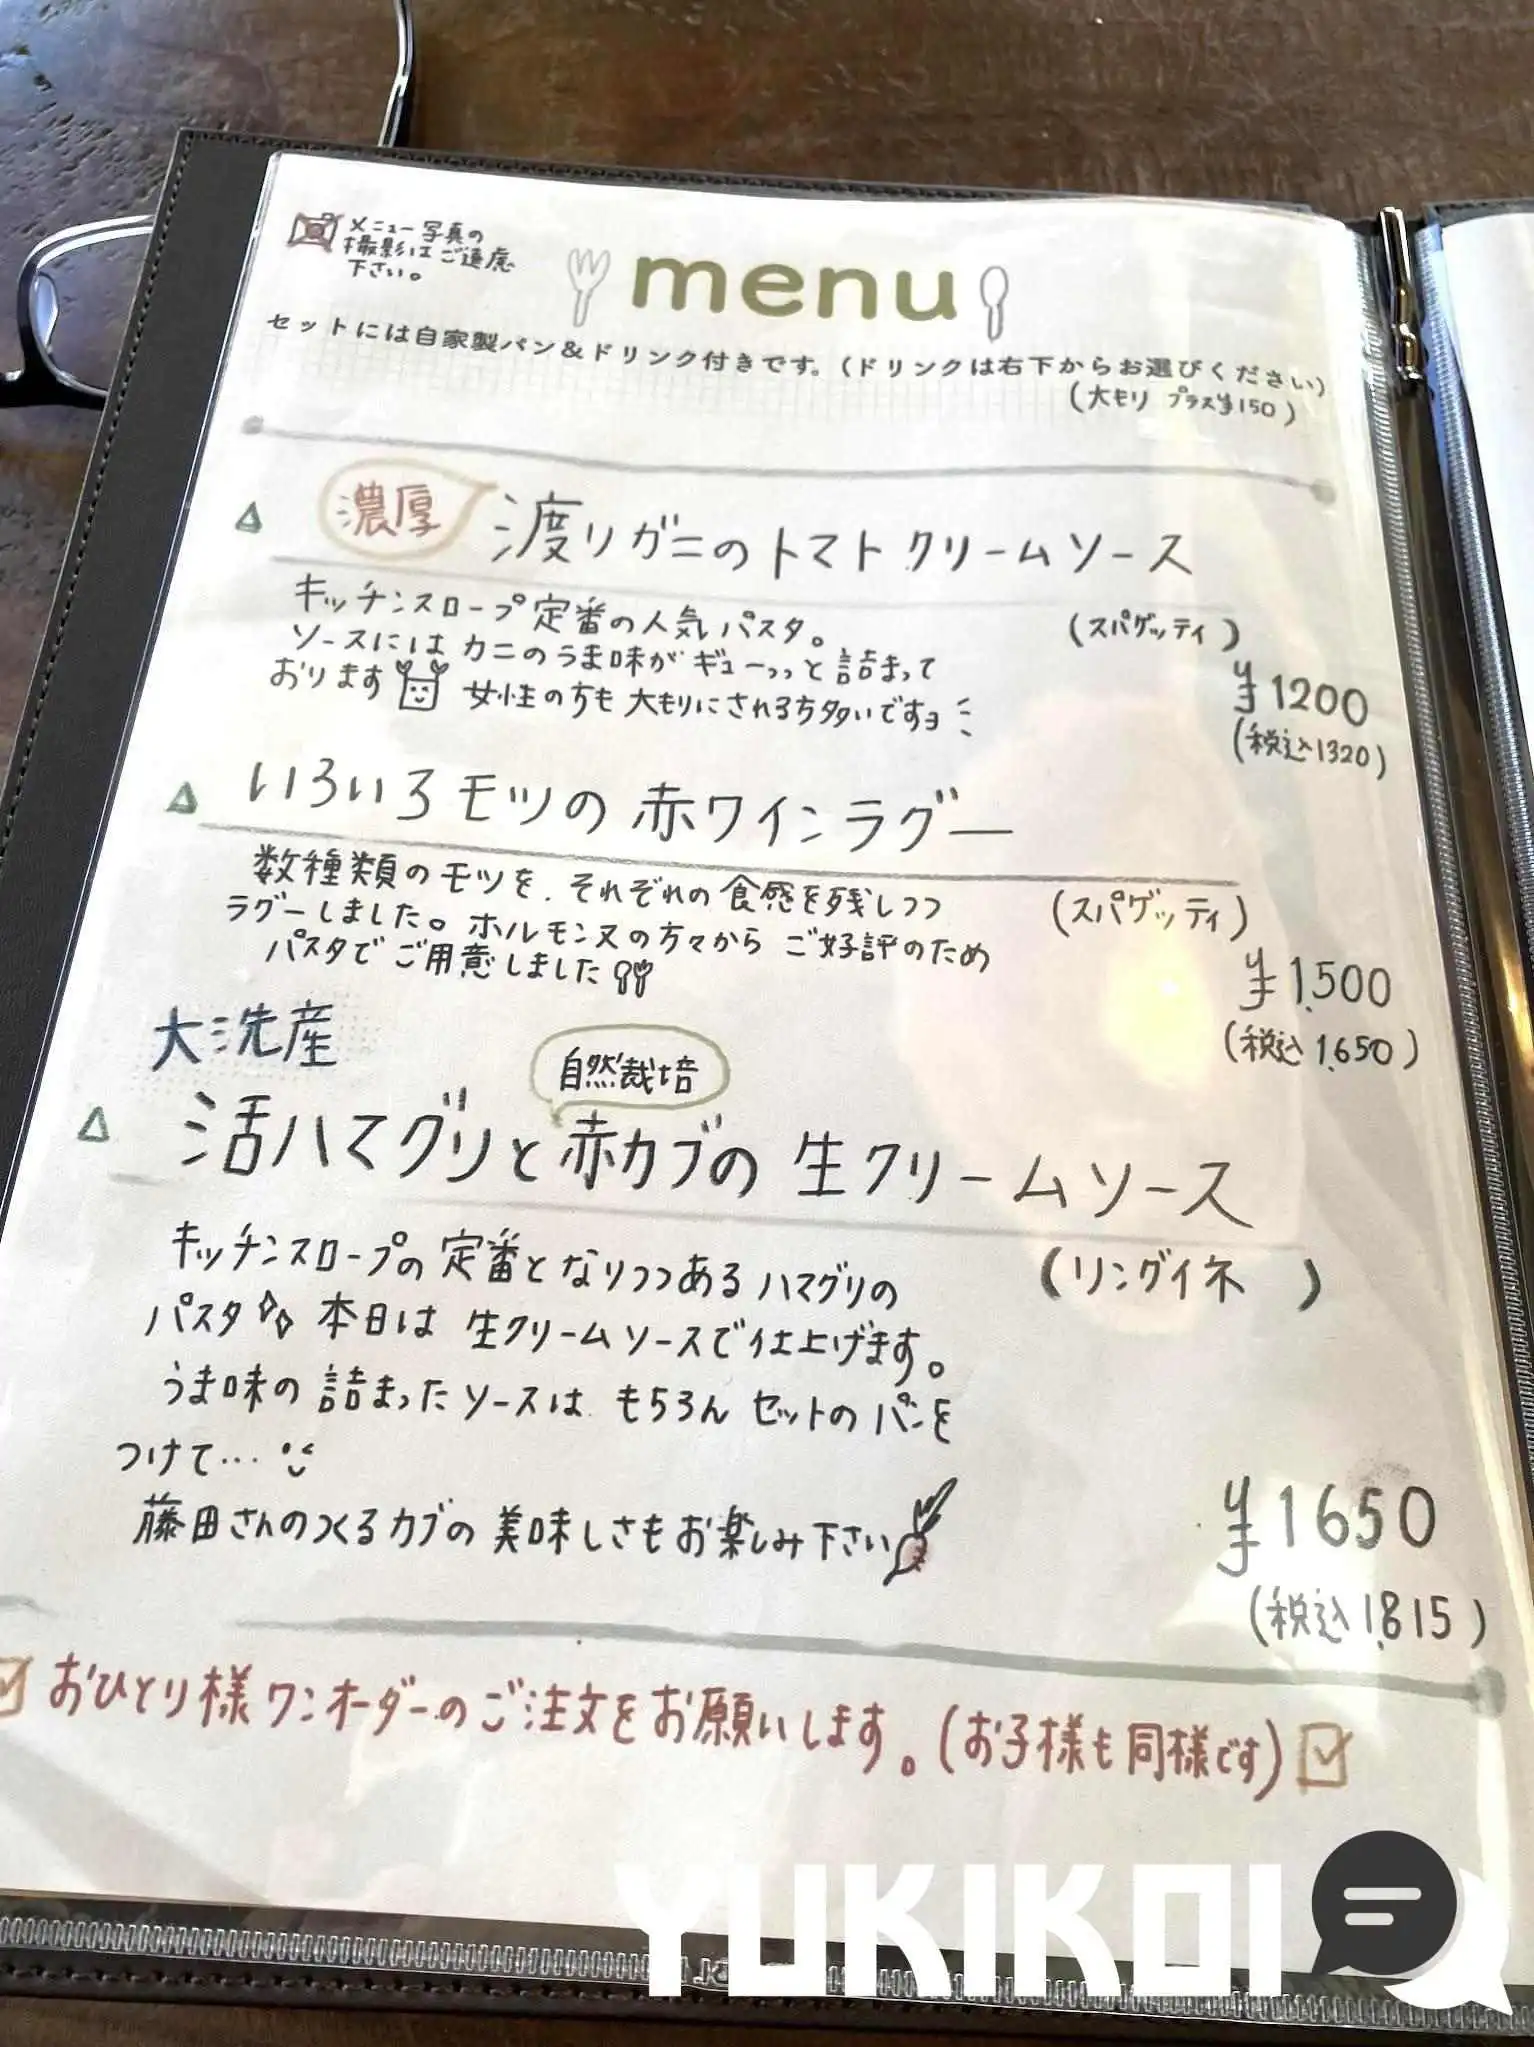 メニュー写真の
撮影はご遠慮
下さい。
menu
セットには自家製パン&ドリンク付きです。(ドリンクは右下からお選びください)
(大モリ プラス¥150)
濃厚
渡りガニのトマトクリームソース
キッチンスロープ定番の人気パスタ。
(スパゲッティ)
ソースにはカニのうま味がギューっっと詰まって
おります 女性の方も大もりにされる方多いですョ
¥1200
(税込1320)
いろいろモツの赤ワインラグー
数種類のモツを、それぞれの食感を残しつつ
(スパゲッティ)
ラグーしました。ホルモンヌの方々からご好評のため
パスタでご用意しました
¥1,500
(税込1,650)
大洗産
自然栽培
活ハマグリと赤カブの生クリームソース
キッチンスロープの定番となりつつあるハマグリの
(リングイネ )
パスタ 本日は生クリームソースで仕上げます。
うま味の詰まったソースは もちろんセットのパンを
つけて…
藤田さんのつくるカブの美味しさもお楽しみ下さい
¥1650
(税込1,815)
おひとり様ワンオーダーのご注文をお願いします。(お子様も同様です)
YUKIKOI